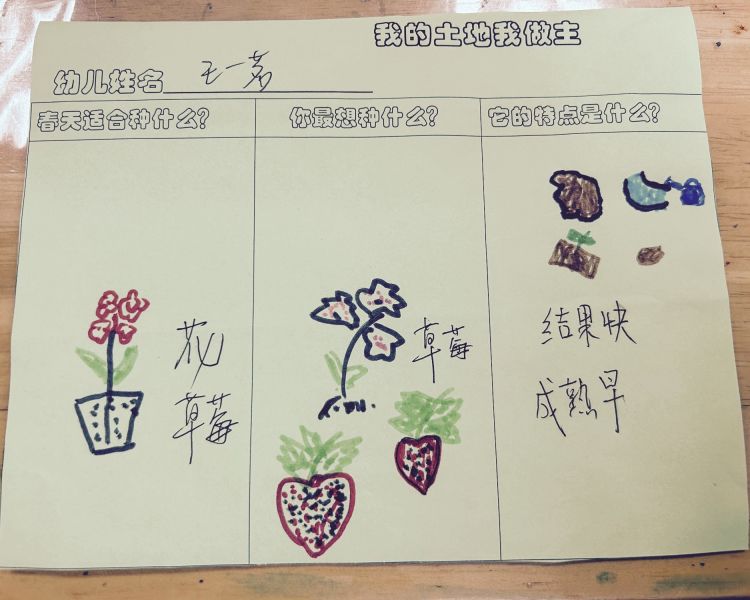 我的土地我做主
幼儿姓名 王一茗
春天适合种什么?
你最想种什么?
它的特点是什么?
花
草莓
草莓
结果快
成熟早